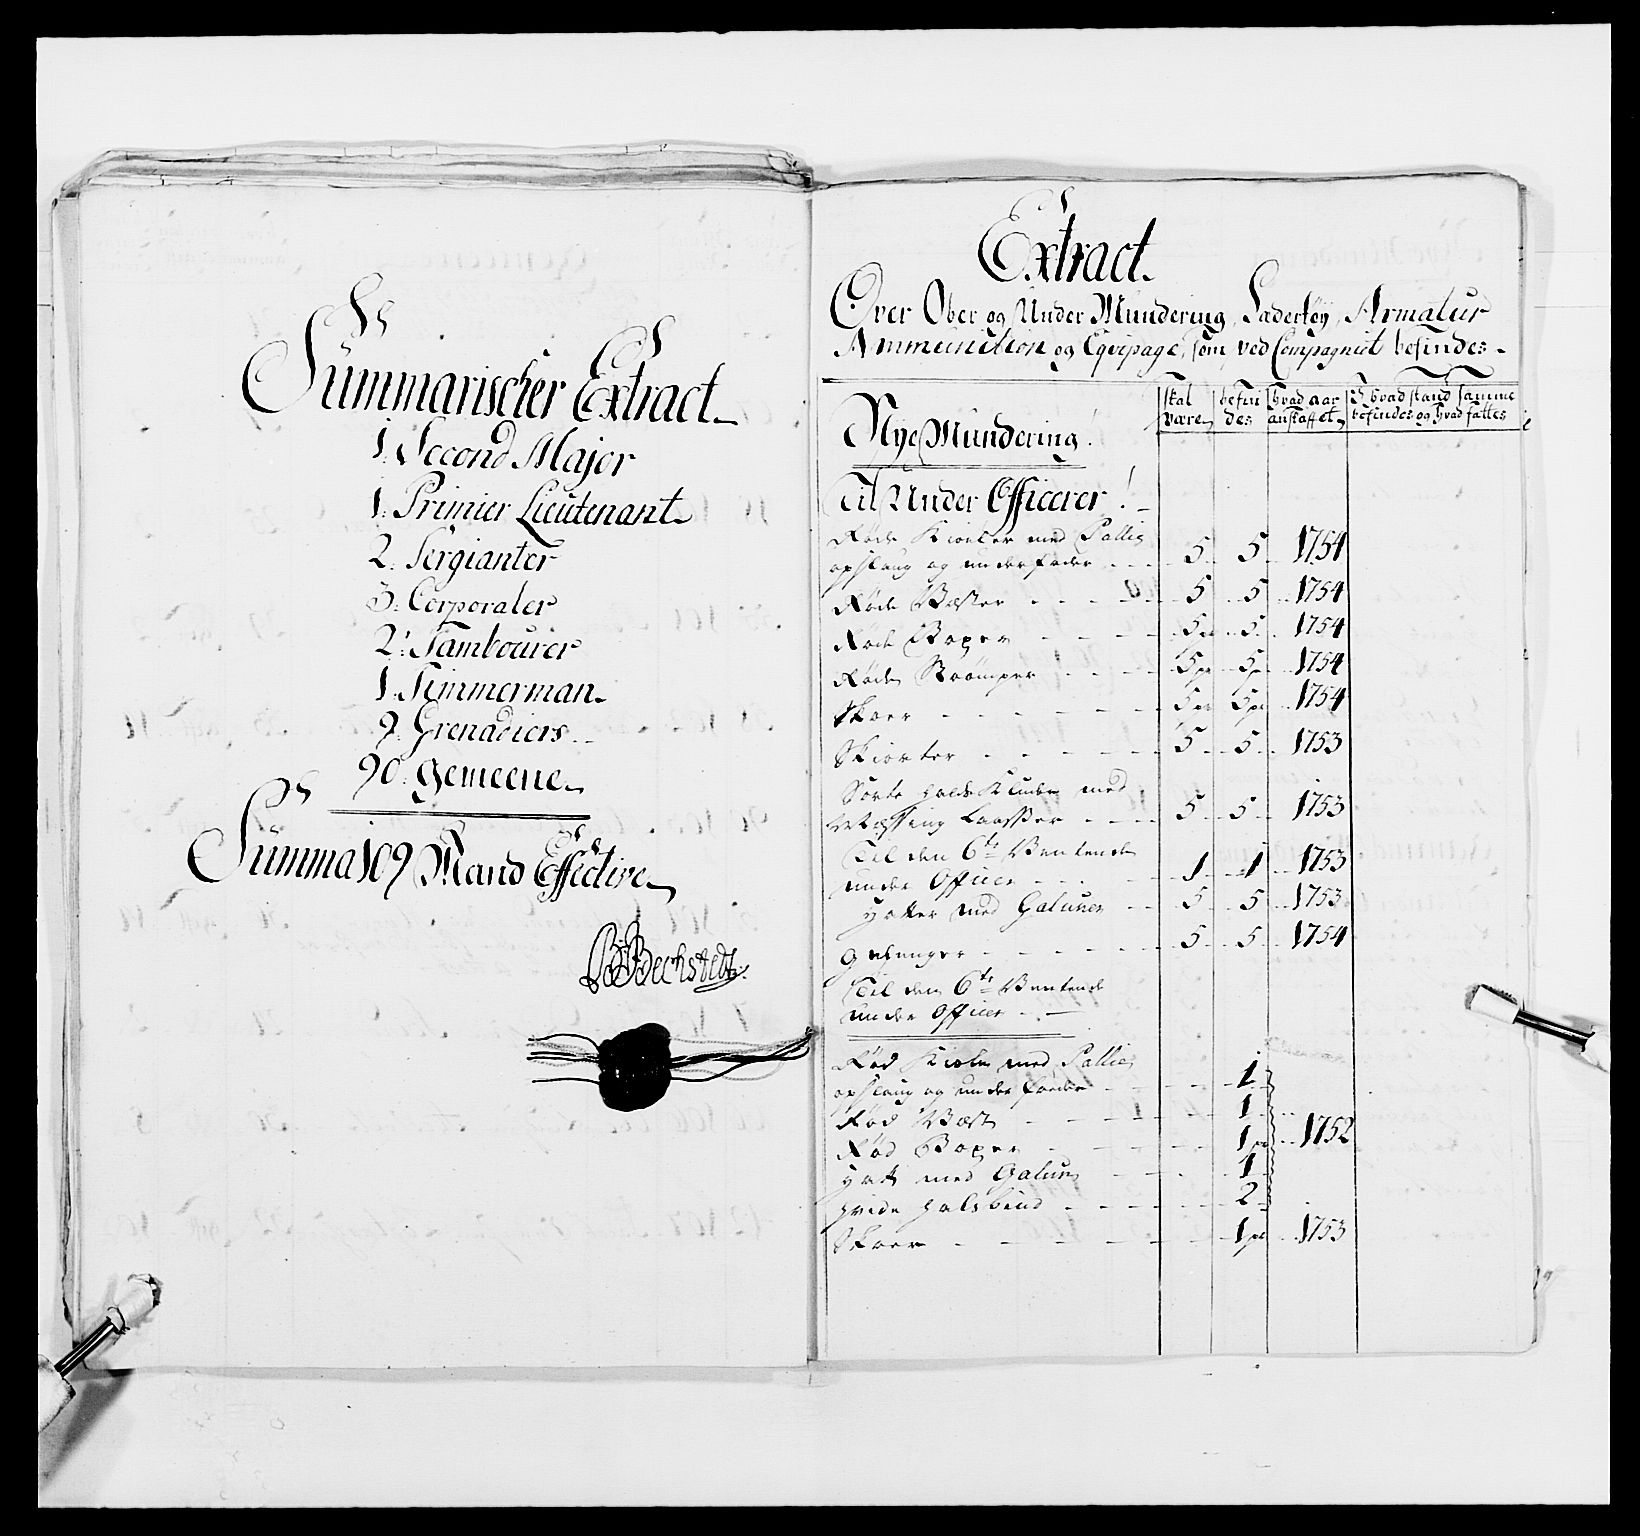 Summarischer Extract
1. Second Major
1. Primier Lieutenant
2. Sergianter
3. Corporaler
2. Tambourer
1. Timmerman
9. Grenadiers
90. gemeene
Summa 109 Mand Effective
Bechstedt
Extract
Over Ober og Under Mundering, Läderköy, Armatur
Ammunition og Eqvipage, som ved Compagniet befindes
skal være | befin des | hvad aar anskaffet | I hvad stand samme befindes og hvad fattes
Nye Mundering
Til Under Officerer
Røde Kioler med Pallie
opslaug og underfoder 5 5 1754
Røde Wæster 5 5 1754
Røde Boxer 5 pr 5 1754
Røde Strømper 5 pr 5 p 1754
Skoer 5 pr 5 pr 1754
Skiorter 5 5 1753
Sorte hals Kluder med
Messing Laasser 5 5 1753
Til den 6te Ventende
under Officer 1 1 1753
Hatter med Galuner 5 5 1753
gehenger 5 5 1754
Til den 6te Ventende
under Officer
Rød Kiole med Pallie
opslaug og underfoeder 1
Rød West 1
Rød Boxer 1 pr 1752
Hatt med Galun 1
hvide halsbind 2
Skoer 1 pr 1753